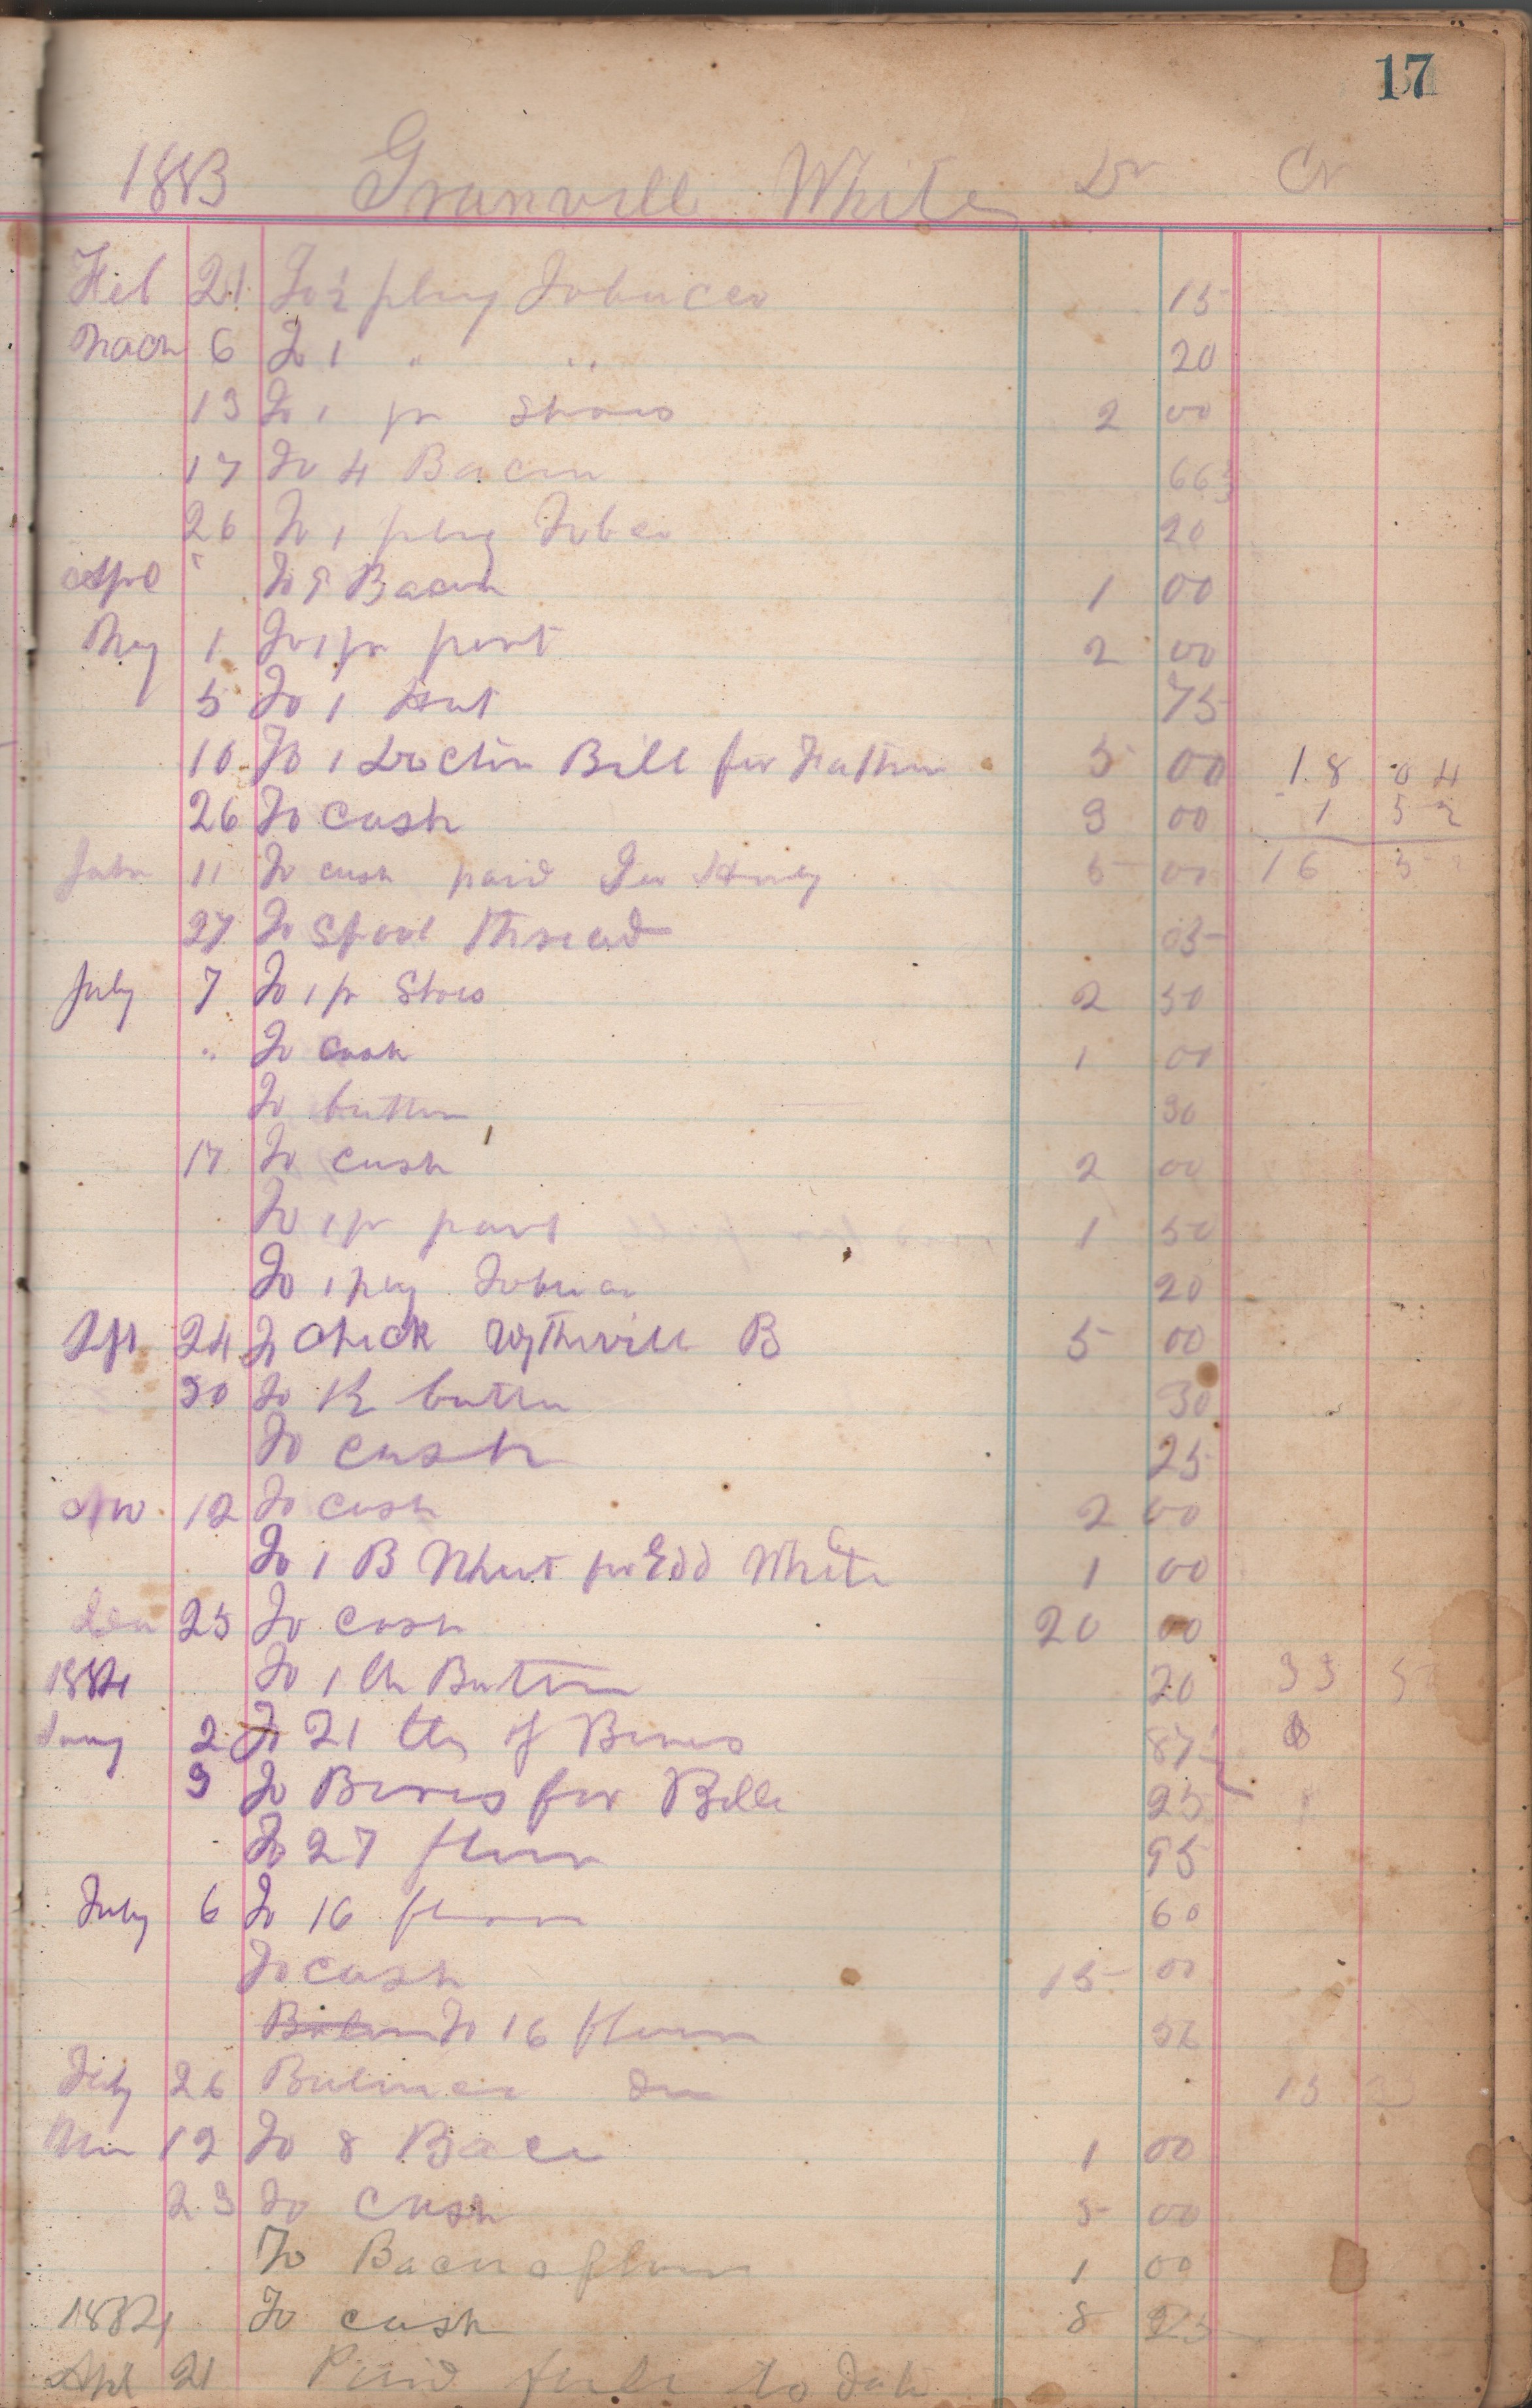 17
1883 Granville White Dr Cr
Feb 21 To ½ plug Tobacco 15
March 6 To 1 " " 20
13 To 1 pr Shoes 2 00
17 To 4 Bacon 66
26 To 1 plug Tobco 20
Aprl " To 8 Bacon 1 00
May 1 To 1 pr pant 2 00
5 To 1 Hat 75
10 To 1 Doctor Bill for Father 5 00 18 04
26 To cash 3 00 1 52
June 11 To cash paid 5 00 16 5
27 To Spool Thread 05
July 7 To 1 pr Shoes 2 50
" To cash 1 00
To butter 30
17 To cash 2 00
To 1 pr pant 1 50
To 1 plug Tobacco 20
Sept 24 To Check Wytheville B 5 00
30 To butter 30
To cash 25
Nov 12 To cash 2 00
To 1 B Wheat for Edd White 1 00
Dec 25 To cash 20 00
1884 To 1 lb Butter 20 33 5
Jany 2 To 21 lbs of Bones 87
9 To Bones for Bille 25
To 27 flour 95
July 6 To 16 flour 60
To cash 15 00
To 16 flour 56
Feby 26 Balance due 15
Mar 12 To 8 Bacon 1 00
23 To Cash 5 00
To Bacon & flour 1 00
1884 To cash 8 25
Apl 21 Paid full to date